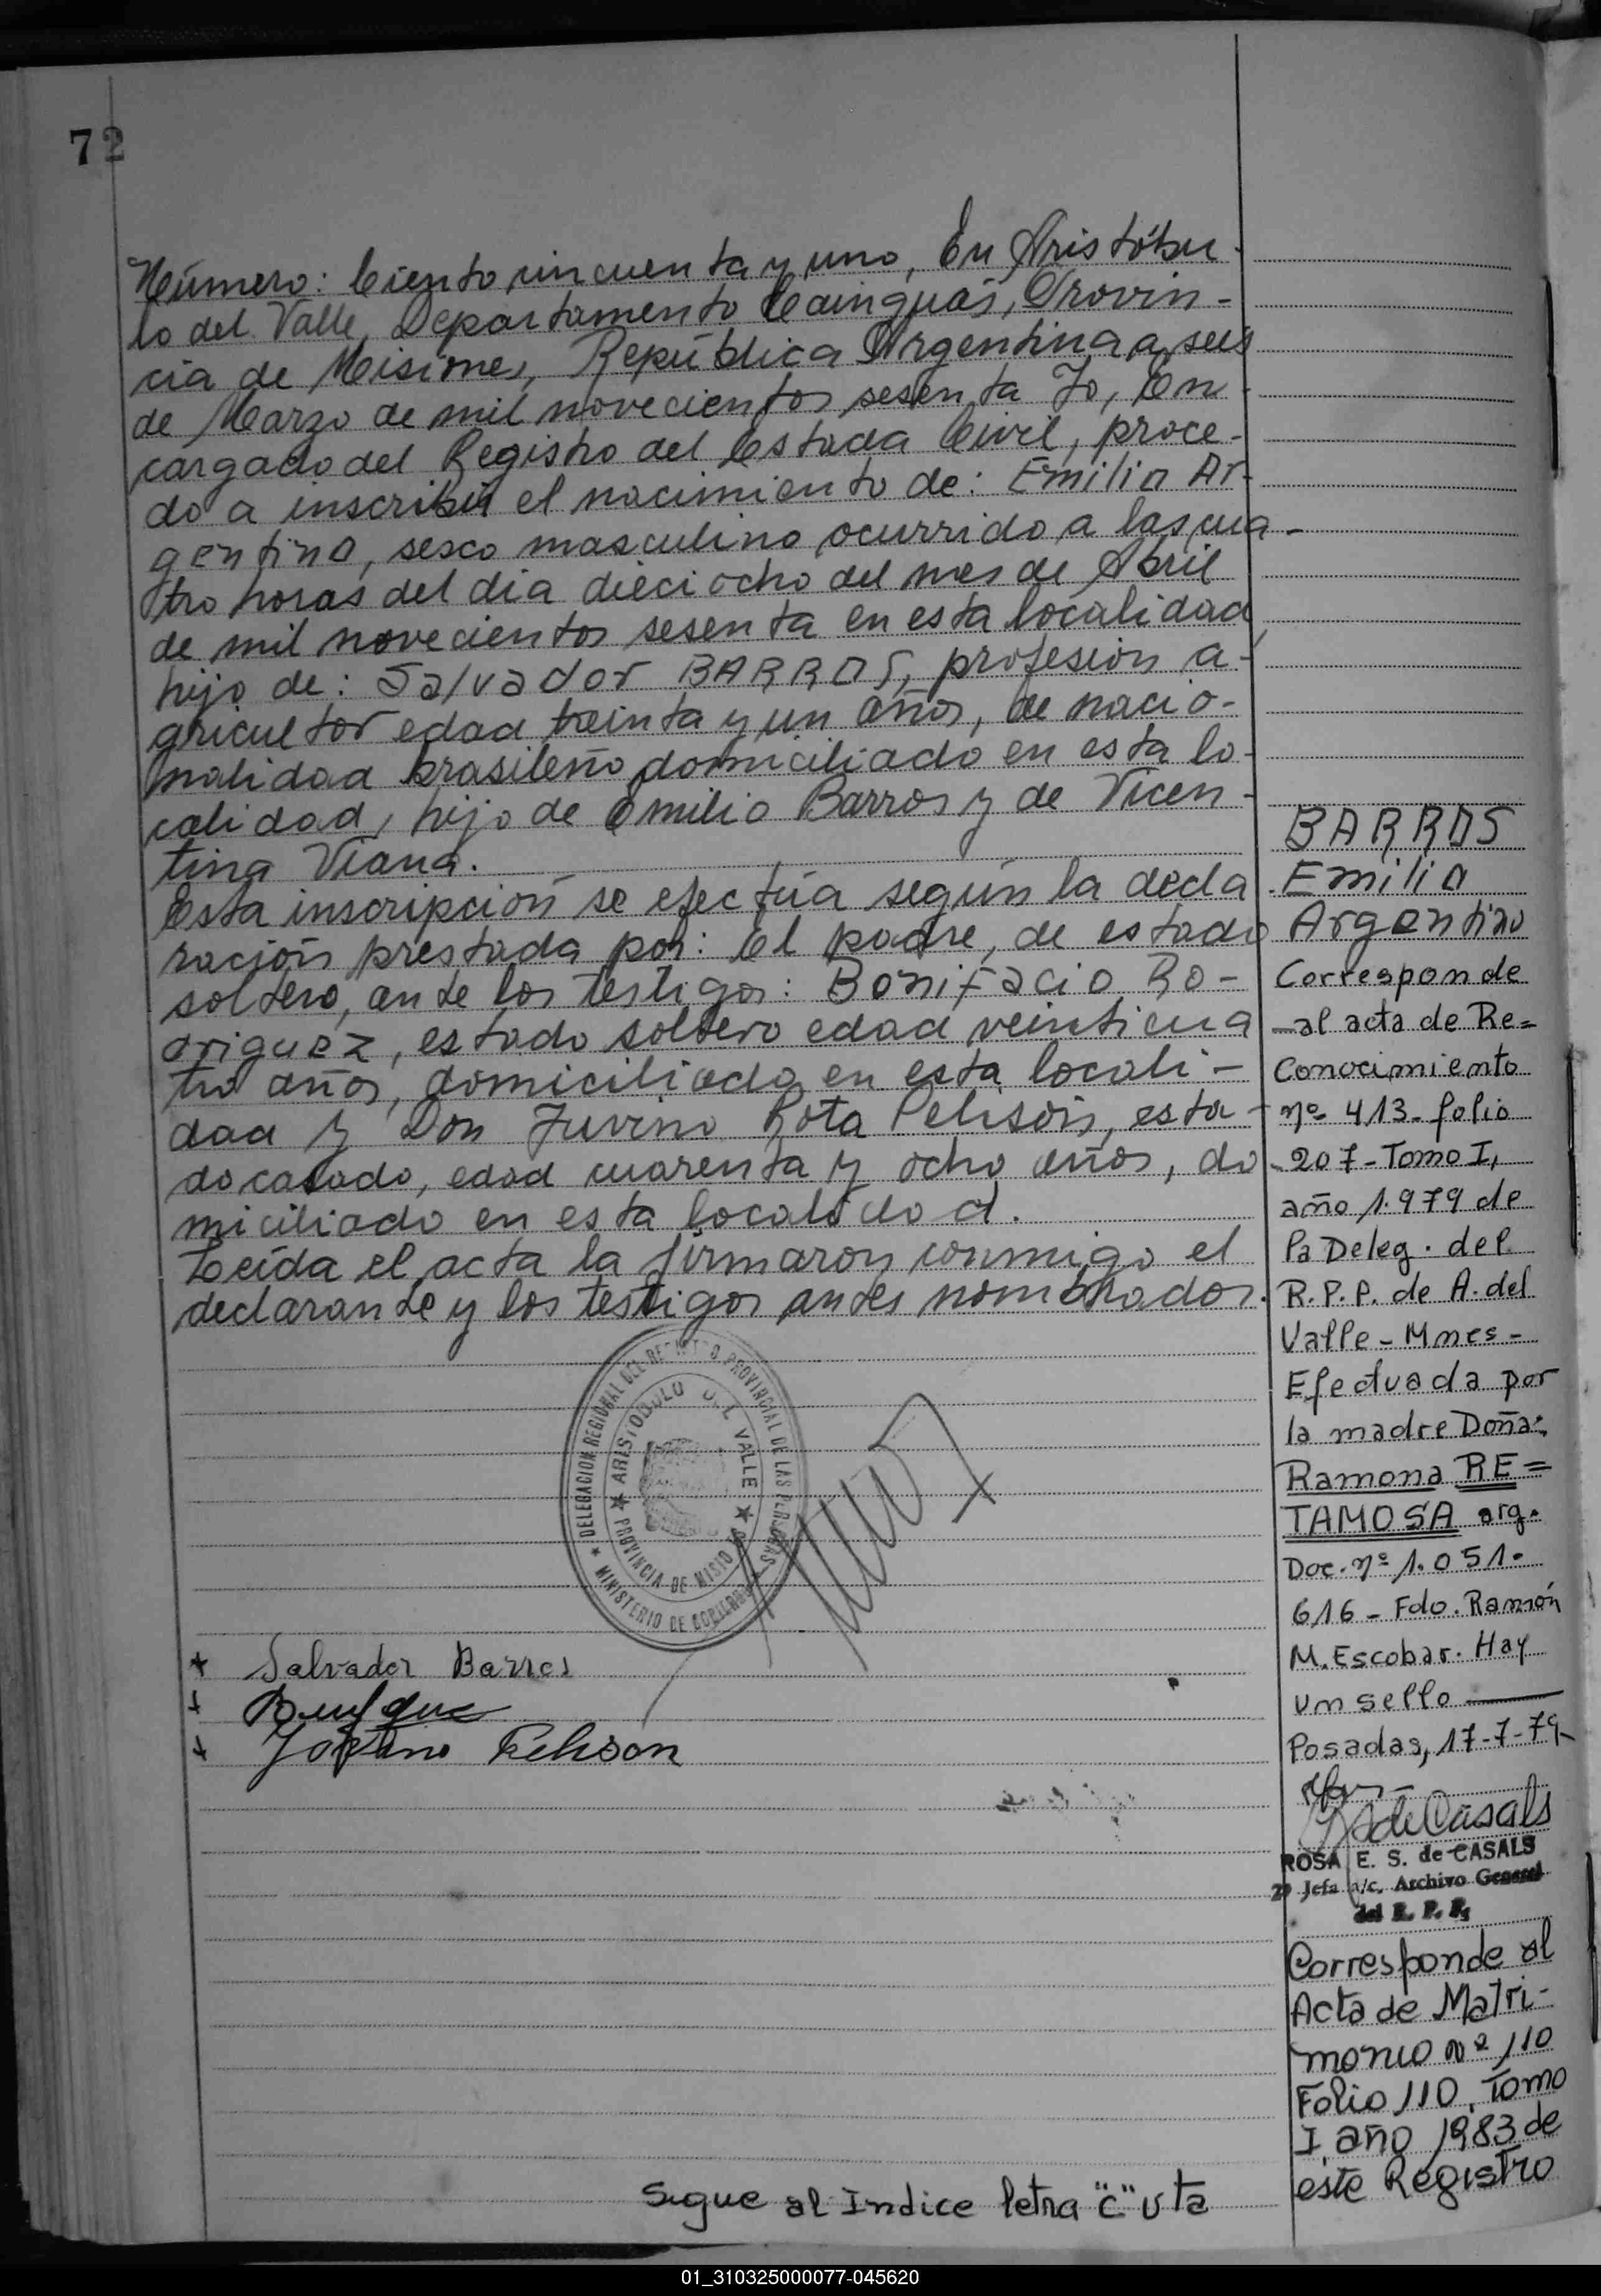 72
Número: Ciento cincuenta y uno, En Aristóbu-
lo del Valle, Departamento Cainguás, Provin-
cia de Misiones, República Argentina a seis
de Marzo de mil novecientos sesenta Yo, En-
cargado del Registro del Estado Civil, proce-
do a inscribir el nacimiento de: Emilio Ar-
gentino, sexo masculino ocurrido a las cua-
tro horas del día dieciocho del mes de Abril
de mil novecientos sesenta en esta localidad,
hijo de: Salvador BARROS, profesión a-
gricultor edad treinta y un años, de nacio-
nalidad brasileño domiciliado en esta lo-
calidad, hijo de Emilio Barros y de Vicen-
tina Viana.
Esta inscripción se efectúa según la decla
ración prestada por: el padre, de estado
soltero, ante los testigos: Bonifacio Ro-
driguez, estado soltero edad veinticua
tro años, domiciliado en esta locali-
dad y Don Juvino Rota Pelisson, esta-
do casado, edad cuarenta y ocho años, do-
miciliado en esta localidad.
Leída el acta la firmaron conmigo el
declarante y los testigos antes nombrados.
DELEGACION REGIONAL DEL REGISTRO PROVINCIAL DE LAS PERSONAS
ARISTOBULO DEL VALLE
PROVINCIA DE MISIO
MINISTERIO DE GOBIERNO
Salvador Barros
Pelisson
Sigue al Indice letra "C" Vta
BARROS
Emilio
Argentino
Corresponde
al acta de Re=
Conocimiento
nº 413-folio
207-Tomo I,
año 1.979 de
la Deleg. del
R.P.P. de A. del
Valle-Mnes-
Efectuada por
la madre Doña:
Ramona RE=
TAMOSA arg.
Doc. nº 1.051.
616-Fdo. Ramón
M. Escobar. Hay
un sello
Posadas, 17-7-79
de Casals
ROSA E. S. de CASALS
2º Jefa a/c. Archivo General
del R. P. P.
Corresponde al
Acta de Matri-
monio nº 110
Folio 110, Tomo
I año 1983 de
este Registro
01_310325000077-045620